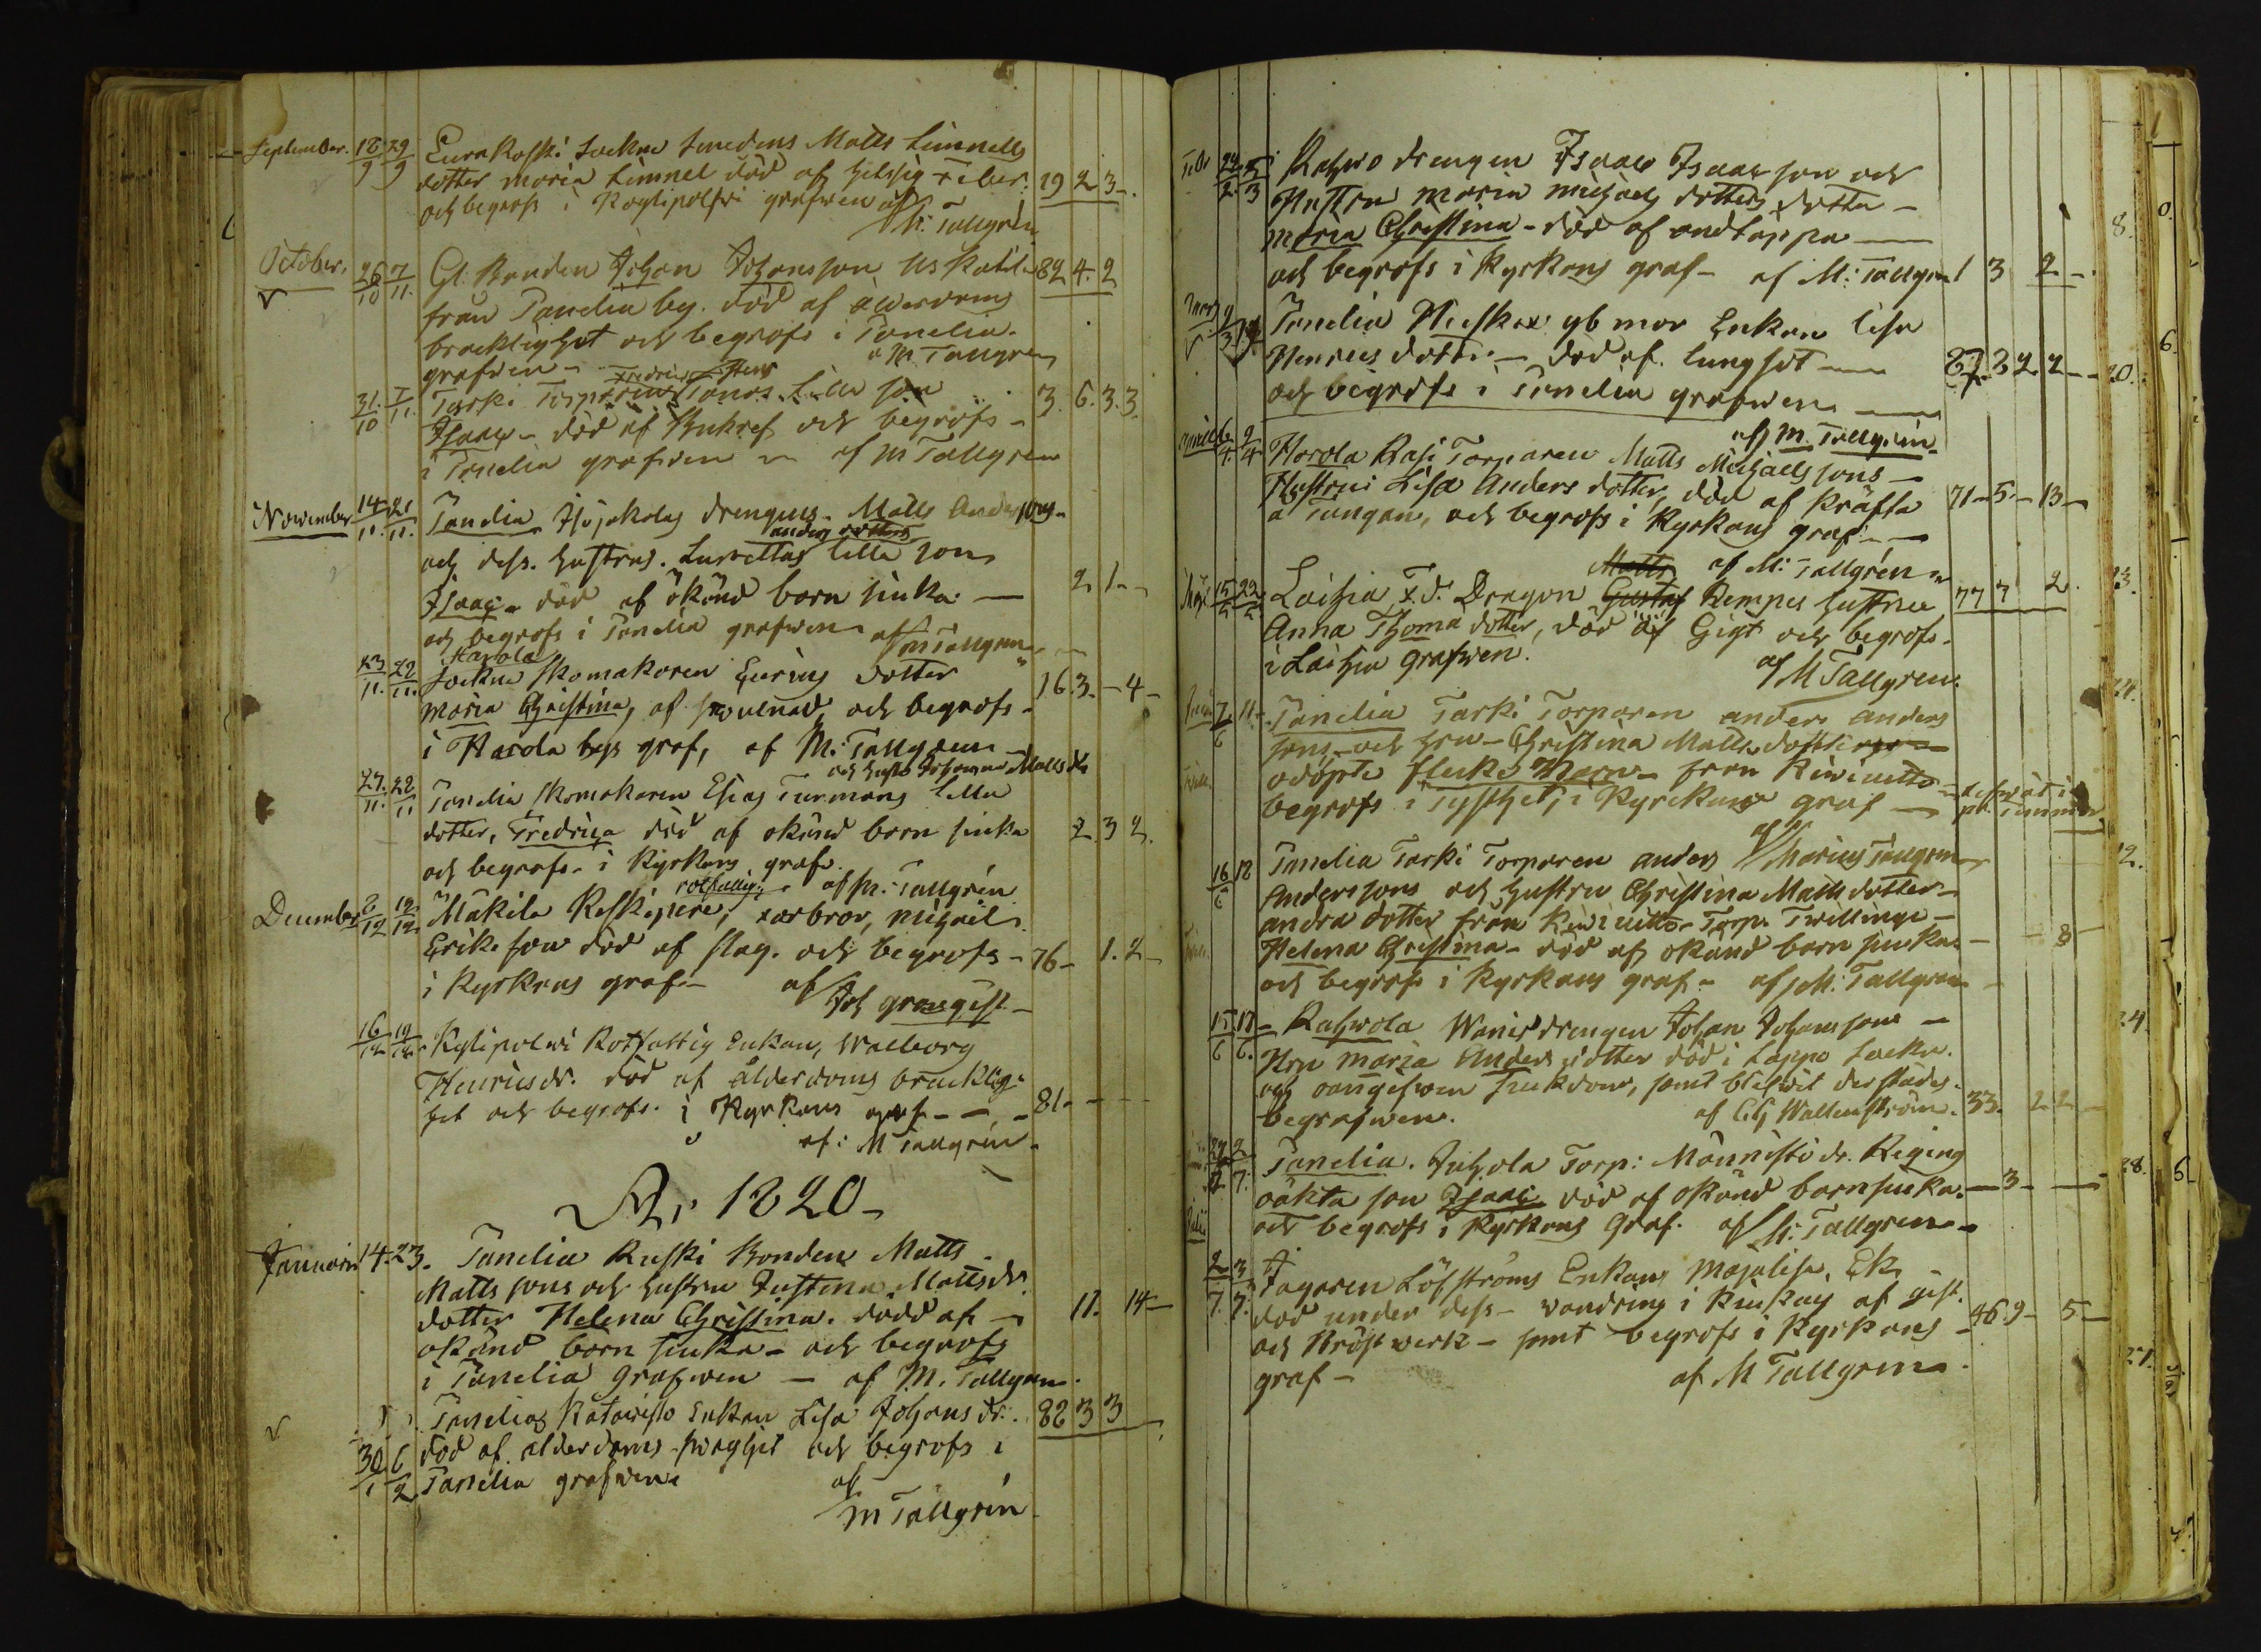 September. 18/9 29/9 Eurakoski Sockne Smedens Matts Limnells
dotter Maria Limnel död af hetsig Feber. 19 2 3 -
och begrofs i Kyylipolfvi grafwen af
M: Tallgrén
October. 26/10 7/11. Gl: Bonden Johan Johansson Us Katila 82 4. 2
från Panelia by. död af ålderdoms
bräcklighet och begrofs i Panelia
grafwen - a M Tallgren
31./10 7/11. Tarki Torparens Lilla son 3. 6. 3. 3.
Isaac - död af Bukref och begrofs -
i Panelia grafwen af M Tallgren
November 14/11. 21/11. Panelia drengens Matts Anderssons
anders dotters
och dess hustrus. Lisvettas lilla son
Isaac - död af okänd barn siuka - 2 1 -
och begrofs i Panelia grafwen af M Tallgren
Harola
23/11. 28/11. Sockne skomakaren Eurins dotter 16. 3. - 4 -
Maria Christina, af swulnad och begrofs -
i Harola bys graf, af M: Tallgren -
och hustr Johanna Matts dr
27./11. 28/11 Panelia skomakaren Esias Turmans lilla
dotter, Fredrica död af okänd barn siuka 2. 3 2.
och begrofs - i Kyrkans graf.
rotfattig: af M. Tallgrén
December 8/12 12/12 Mäkilä Koskipere, farbror, Michael
Eriks son död af slag. och begrofs - 76 - 1. 2 -
i Kyrkans graf - af
Joh granqvist -
16/12 19/12 Kylipolwi Rotfattig Enkan, Walborg
Henricsdr. död af ålderdoms bräcklig-
het och begrofs. i Kyrkans graf - - - 81 - - -
af: M Tallgrén -
År 1820 -
Januari 14. 23. Panelia Kuski Bonden Matts
Matts sons och hustru Justina Mattsdr
dotter Helena Christina. död af - 11. 14 -
okänd barn siuka - och begrofs
i Panelia grafwen - af M. Tallgren
Panelias Katavisto Enkan Lisa Johans dr. 82 3 3
30/1 6/2 död af ålderdoms swaghet och begrofs i
Panelia grafwen af
M Tallgrén
Febr 24/2. 5/3 Rahwo drengen Isaac Isaacsson och
Hustru Maria Michaels dotters dotter -
Maria Christina - död af andtäppa -
och begrofs i Kyrkans graf - af M: Tallgren 1 3 2 -
Mars 9/3 Panelia Nuskan gb mor Enkan Lisa
Henrics dotter - död af lungsot -
och begrofs i Panelia grafwen -
af M. Tallgrén
april 6/4. 9/4 Harola Rasi Torparen Matts Michaelssons -
Hustru Lisa Anders dotter, död af Kräfta 71 - 5 - 13 -
a Tungan, och begrofs i Kyrkans graf -
Matts af M: Tallgrén
Maji 15/5 22/5 Laihia F. d. Dragon Gustaf Rempes hustru 77 7 2.
Anna Thoma dotter, död af Gigt och begrofs -
i Laihia grafwen. af M Tallgren.
7/6 11 - Panelia Tarki Torparen anders anders
sons - och hru - Christina Matts dotters
odöpte flicko Barn - fran Kiwinitto
begrofs i tysthet, i Kyrkans graf -
af Marius Tallgren
16/6 18 Panelia Tarki Torparen anders
Anderssons och hustru Christina Matts dotter -
andra dotter från Kiwinitto - Torp. Twillinge -
Helena Christina - död af okänd barn siuka - - 8 -
och begrofs i Kyrkans graf - af M. Tallgren
15/6 18/6. - Rahwola Wanis drengen Johan Johanssons -
Hru Maria Anders dotter död i Lappo Sockn.
och oangifwen siukdom, samt blifwit derstädes
begrafwen. af C G Wallenström. 33. 2 2 -
2/7. Panelia. Juhola Torp: Männistö dr. Regina
oäkta son Isaac död af okänd barnsiuka. - 3 - -
och begrofs i Kyrkans Graf. af M: Tallgren -
Julii
2/7. 3/7. Jagaren Löfströms Enkan Majalisa. Ek
död under dess - wandring i Kiukais af gigt. 46. 9 - 5 -
och Bröst werk - samt begrofs i Kyrkans -
graf - af M Tallgren